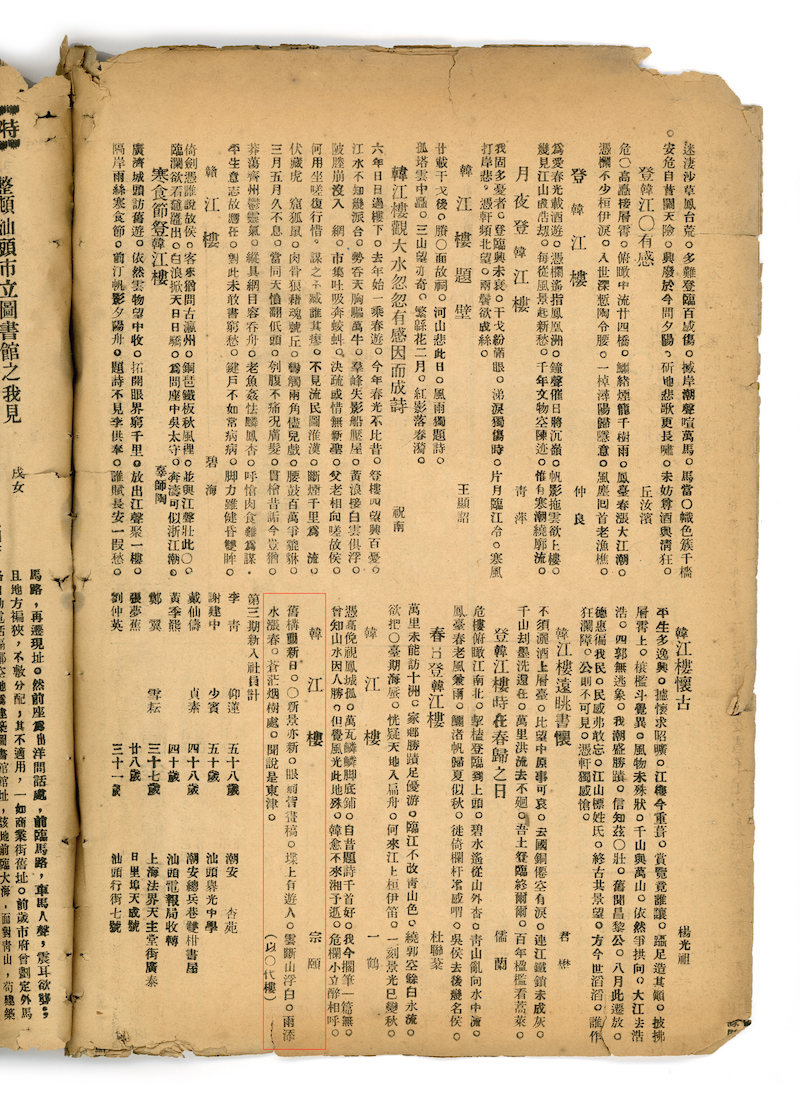 迷淒沙草鳳台荒。多難登臨百感傷。撼岸潮聲喧萬馬。馬當〇幟色簇千檣
。安危自昔關天險。興廢於今問夕陽。斫地悲歌更長嘯。未妨尊酒與淸狂。
登韓江〇有感　丘汝濱
危〇高矗接層霄。俯瞰中流廿四橋。鱷緒煙籠千樹雨。鳳臺春漲大江潮。
憑欄不少桓伊淚。入世深慙陶令腰。一棹潯陽歸隱意。風塵回首老漁樵。
登韓江樓　仲良
爲愛春光載酒遊。憑欄遙指鳳凰洲。鐘聲催日將沉嶺。帆影拖雲欲上樓。
幾見江山處浩劫。每從風景起新愁。千年文物空陳迹。惟有寒潮繞郭流。
月夜登韓江樓　青萍
我固多憂者。登臨興未衰。干戈紛滿眼。涕淚獨傷時。片月臨江冷。寒風
打岸悲。憑軒頻北望。兩鬢欲成絲。
韓江樓題壁　王顯詔
廿載干戈後。勝〇面故祠。河山悲此日。風雨獨題詩。
孤塔雲中矗。三山望亦奇。繁縣花二月。紅影落春漪。
韓江樓觀大水忽忽有感因而成詩　祝南
六年日日過樓下。去年始一乘春遊。今年春光不比昔。登樓四望興百憂。
江水不知幾派合。勢吞天胸驅萬牛。羣峰失影船壓屋。黃浪接白雲俱浮。
陂隆崩沒入　網。市集吐吸奔蛟蚪。決疏或惜無新聖。父老相向嗟故侯。
何用坐嗟復行惜。謀之不臧誰其瘳。不見流民圖淮漢。斷煙千里爲　流。
伏藏虎　窟狐鼠。肉骨狼藉魂號丘。蠻觸兩角儘兒戲。腰鼓百萬爭貔貅。
三月五月久不息。當同天恤翻低頭。列腹不痛況膚髮。貫檜昔話今豈猶。
莽蕩齊州鬱靈氣。縱具網目容吞舟。老魚姦怯麟鳳杏。呼愴肉食難爲謀。
平生意志故應在。對此未敢書窮愁。鍵戶不如常病病。脚力雖健昏雙眸。
韓江樓　碧海
倚劍憑誰說故侯。客來猶問古瀛州。銅琶鐵板秋風裡。並與江聲壯此〇。
臨瀾欲看鱷蹤出。白浪掀天日日驕。爲問座中吳太守。奔濤可似浙江潮。
寒食節登韓江樓　辜師陶
廣濟城頭訪舊遊。依然雲物望中收。拓開眼界窮千里。放出江聲聚一樓。
隔岸雨絲寒食節。前汀帆影夕陽舟。題詩不見李供奉。誰賦長安一段愁。
韓江樓懷古　楊光祖
平生多逸興。據懷求昭曠。江樓今重葺。賞覽竟誰讓。躡足造其顚。披拂
層霄上。榱檻斗覺異。風物未殊狀。千山與萬山。依然爭拱向。大江去浩
浩。四郭無逃象。我潮盛勝蹟。信知茲〇壯。舊聞昌黎公。八月此遷放。
德惠徧我民。民感弗敢忘。江山標姓氏。終古共景望。方今世滔滔。誰作
狂瀾障。公則不可見。憑軒獨感愴。
韓江樓遠眺書懷　君懋
不須灑酒上層臺。比望中原事可哀。去國銅僊空有淚。連江鐵鎖未成灰。
千山刦墨洗還在。萬里洪流去不廻。吾土登臨終爾爾。百年楹檻看蒿萊。
登韓江樓時在春歸之日　儒蘭
危樓俯瞰江南北。挐榼登臨到上頭。碧水遙從山外杳。靑山亂向水中流。
鳳臺春老風兼雨。鱷渚帆歸夏似秋。徙倚欄杆常感喟。吳侯去後幾名侯。
春日登韓江樓　杜聯棻
萬里未能訪十洲。家鄉勝蹟足優游。臨江不改靑山色。繞郭空餘白水流。
欲把〇臺期海蜃。恍疑天地入扁舟。何來江上桓伊笛。一刻景光已變秋。
韓江樓　一鶴
憑高俛視鳳城孤。萬瓦鱗鱗脚底鋪。自昔題詩千首好。我今擱筆一篇無。
曾知山水因人勝。但覺風光此地殊。韓愈不來湘子逝。危欄小立醉相呼。
韓江樓　宗頤
舊構翻新日。〇新景亦新。眼前皆畫稿。堞上有遊人。雲斷山浮白。雨添
水漲春。蒼茫烟樹處。聞說是東津。（以〇代樓）
第三期新入社員計
李青　仰蓮　五十八歲　潮安　杏苑
謝建中　少賓　五十歲　汕頭礐光中學
戴仙儔　貞素　四十八歲　潮安總兵巷雙柑書屋
黃季熊　四十歲　汕頭電報局收轉
鄭翼　雪耘　三十七歲　上海法界天主堂街廣泰
張夢蕉　廿八歲　日里埠天成號
劉仲英　三十一歲　汕頭行街七號
特
整頓汕頭市立圖書館之我見　戌女
馬路，再遷現址。然前座爲出洋問話處，前臨馬路，車馬人聲，震耳欲聾，
且地方褊狹，不敷分配，其不適用，一如商業街舊址。前歲市府曾劃定外馬
館址，該地前臨大海，面對靑山，苟建築